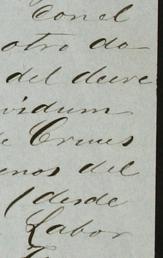 Con el
otro do
del decre
viduum
e Cruces
enos del
(desde
Labor